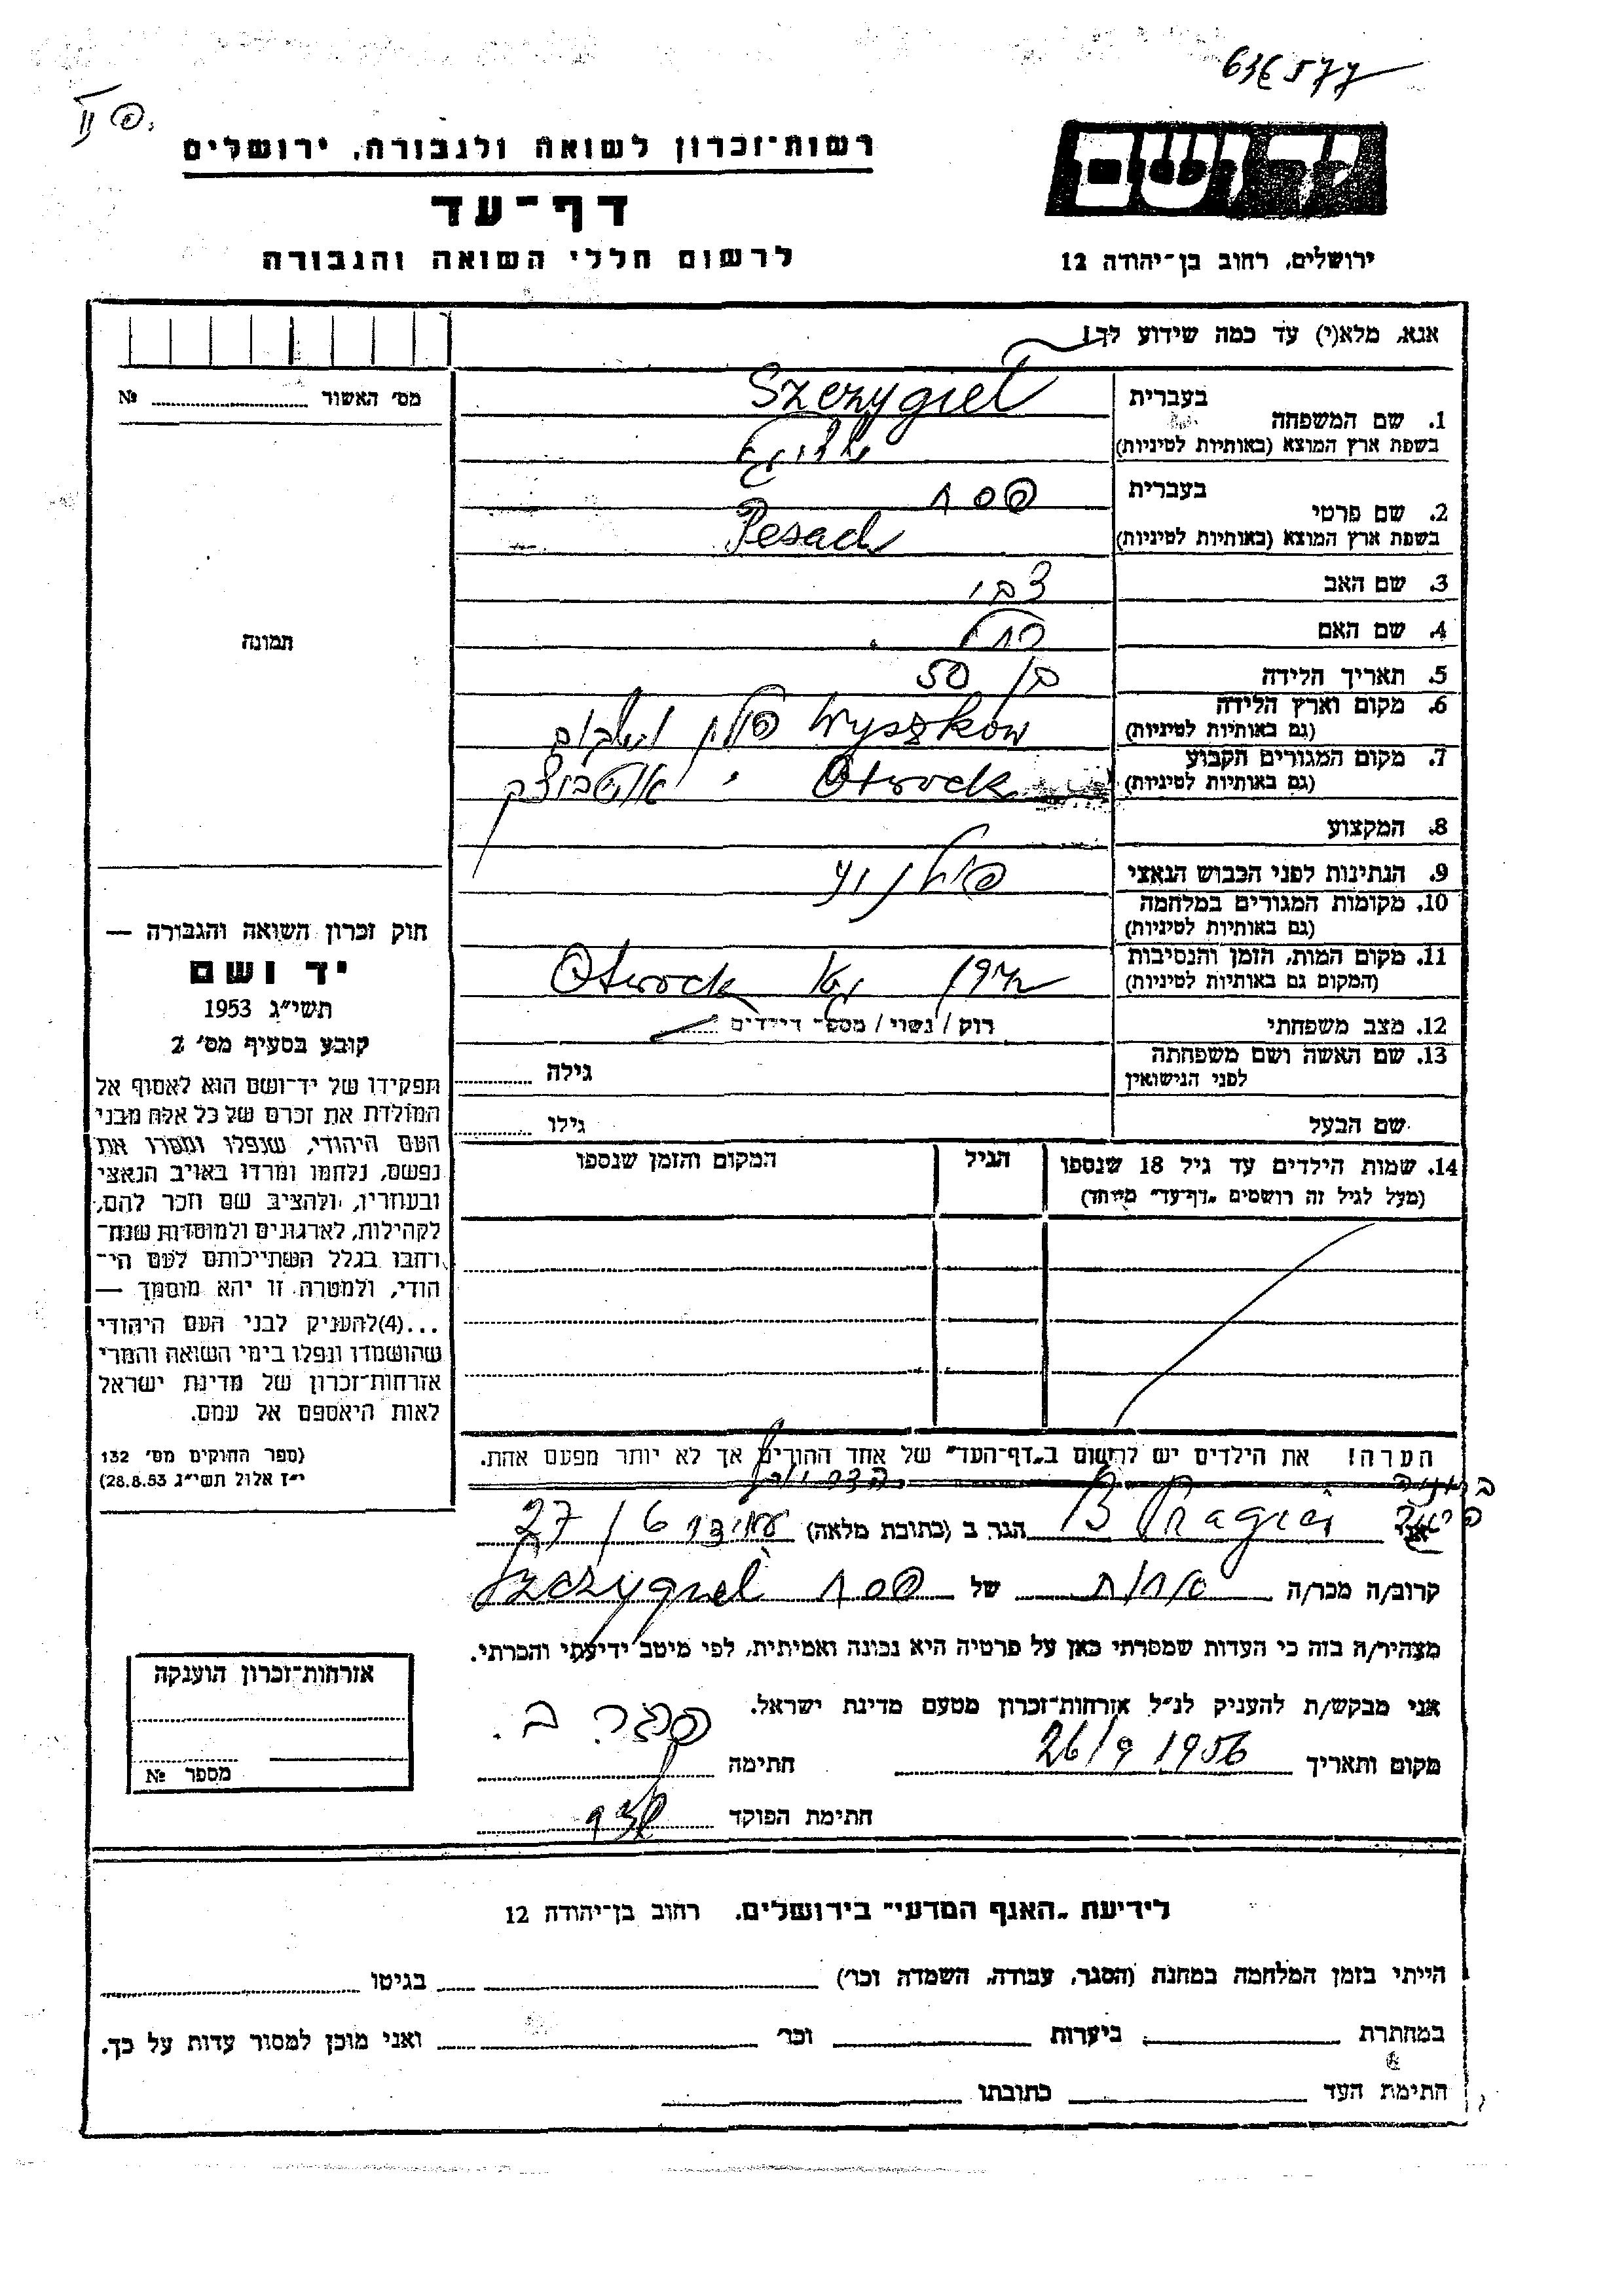 636577
II פ.
יד ושם
רשות־זכרון לשואה ולגבורה, ירושלים
דף־עד
לרשום חללי השואה והגבורה
ירושלים, רחוב בן־יהודה 12
אנא, מלא(י) עד כמה שידוע לך!
מס׳ האשור № 
בעברית Szczygieł
1. שם המשפחה
בשפת ארץ המוצא (באותיות לטיניות)
בעברית פסח
2. שם פרטי
בשפת ארץ המוצא (באותיות לטיניות) Pesach
3. שם האב צבי
4. שם האם רחל
תמונה
5. תאריך הלידה בן 50
6. מקום וארץ הלידה Wyszków פולין
(גם באותיות לטיניות)
7. מקום המגורים הקבוע Otwock
(גם באותיות לטיניות)
8. המקצוע
9. הנתינות לפני הכבוש הנאצי פולנית
10. מקומות המגורים במלחמה
(גם באותיות לטיניות)
11. מקום המות, הזמן והנסיבות 1942 Otwock
(המקום גם באותיות לטיניות)
12. מצב משפחתי רוק / נשוי / מספר הילדים
13. שם האשה ושם משפחתה גילה
לפני הנישואין
שם הבעל גילו
14. שמות הילדים עד גיל 18 שנספו הגיל המקום והזמן שנספו
(מעל לגיל זה רושמים „דף־עד״ מיוחד)
חוק זכרון השואה והגבורה —
יד ושם
תשי״ג 1953
קובע בסעיף מס׳ 2
תפקידו של יד־ושם הוא לאסוף אל
המולדת את זכרם של כל אלה מבני
העם היהודי, שנפלו ומסרו את
נפשם, נלחמו ומרדו באויב הנאצי
ובעוזריו, ולהציב שם וזכר להם,
לקהילות, לארגונים ולמוסדות שנח־
רחבו בגלל השתייכותם לעם הי־
הודי, ולמטרה זו יהא מוסמך —
...(4)להעניק לבני העם היהודי
שהושמדו ונפלו בימי השואה והמרי
אזרחות־זכרון של מדינת ישראל
לאות היאספם אל עמם.
(ספר החוקים מס׳ 132
י״ז אלול תשי״ג 28.8.53)
הערה! את הילדים יש לרשום ב„דף־העד״ של אחד ההורים אך לא יותר מפעם אחת.
אני B Pragier הגר ב (כתובת מלאה) 27/6
קרוב/ה מכר/ה של פסח Szczygieł
מצהיר/ה בזה כי העדות שמסרתי כאן על פרטיה היא נכונה ואמיתית, לפי מיטב ידיעתי והכרתי.
אני מבקש/ת להעניק לנ״ל אזרחות־זכרון מטעם מדינת ישראל.
מקום ותאריך 26/9 1956 חתימה
חתימת הפוקד
אזרחות־זכרון הוענקה
מספר №
לידיעת „האגף המדעי״ בירושלים. רחוב בן־יהודה 12
הייתי בזמן המלחמה במחנה (הסגר, עבודה, השמדה וכר׳) בגיטו
במחתרת ביערות וכר׳ ואני מוכן למסור עדות על כך.
חתימת העד כתובתו